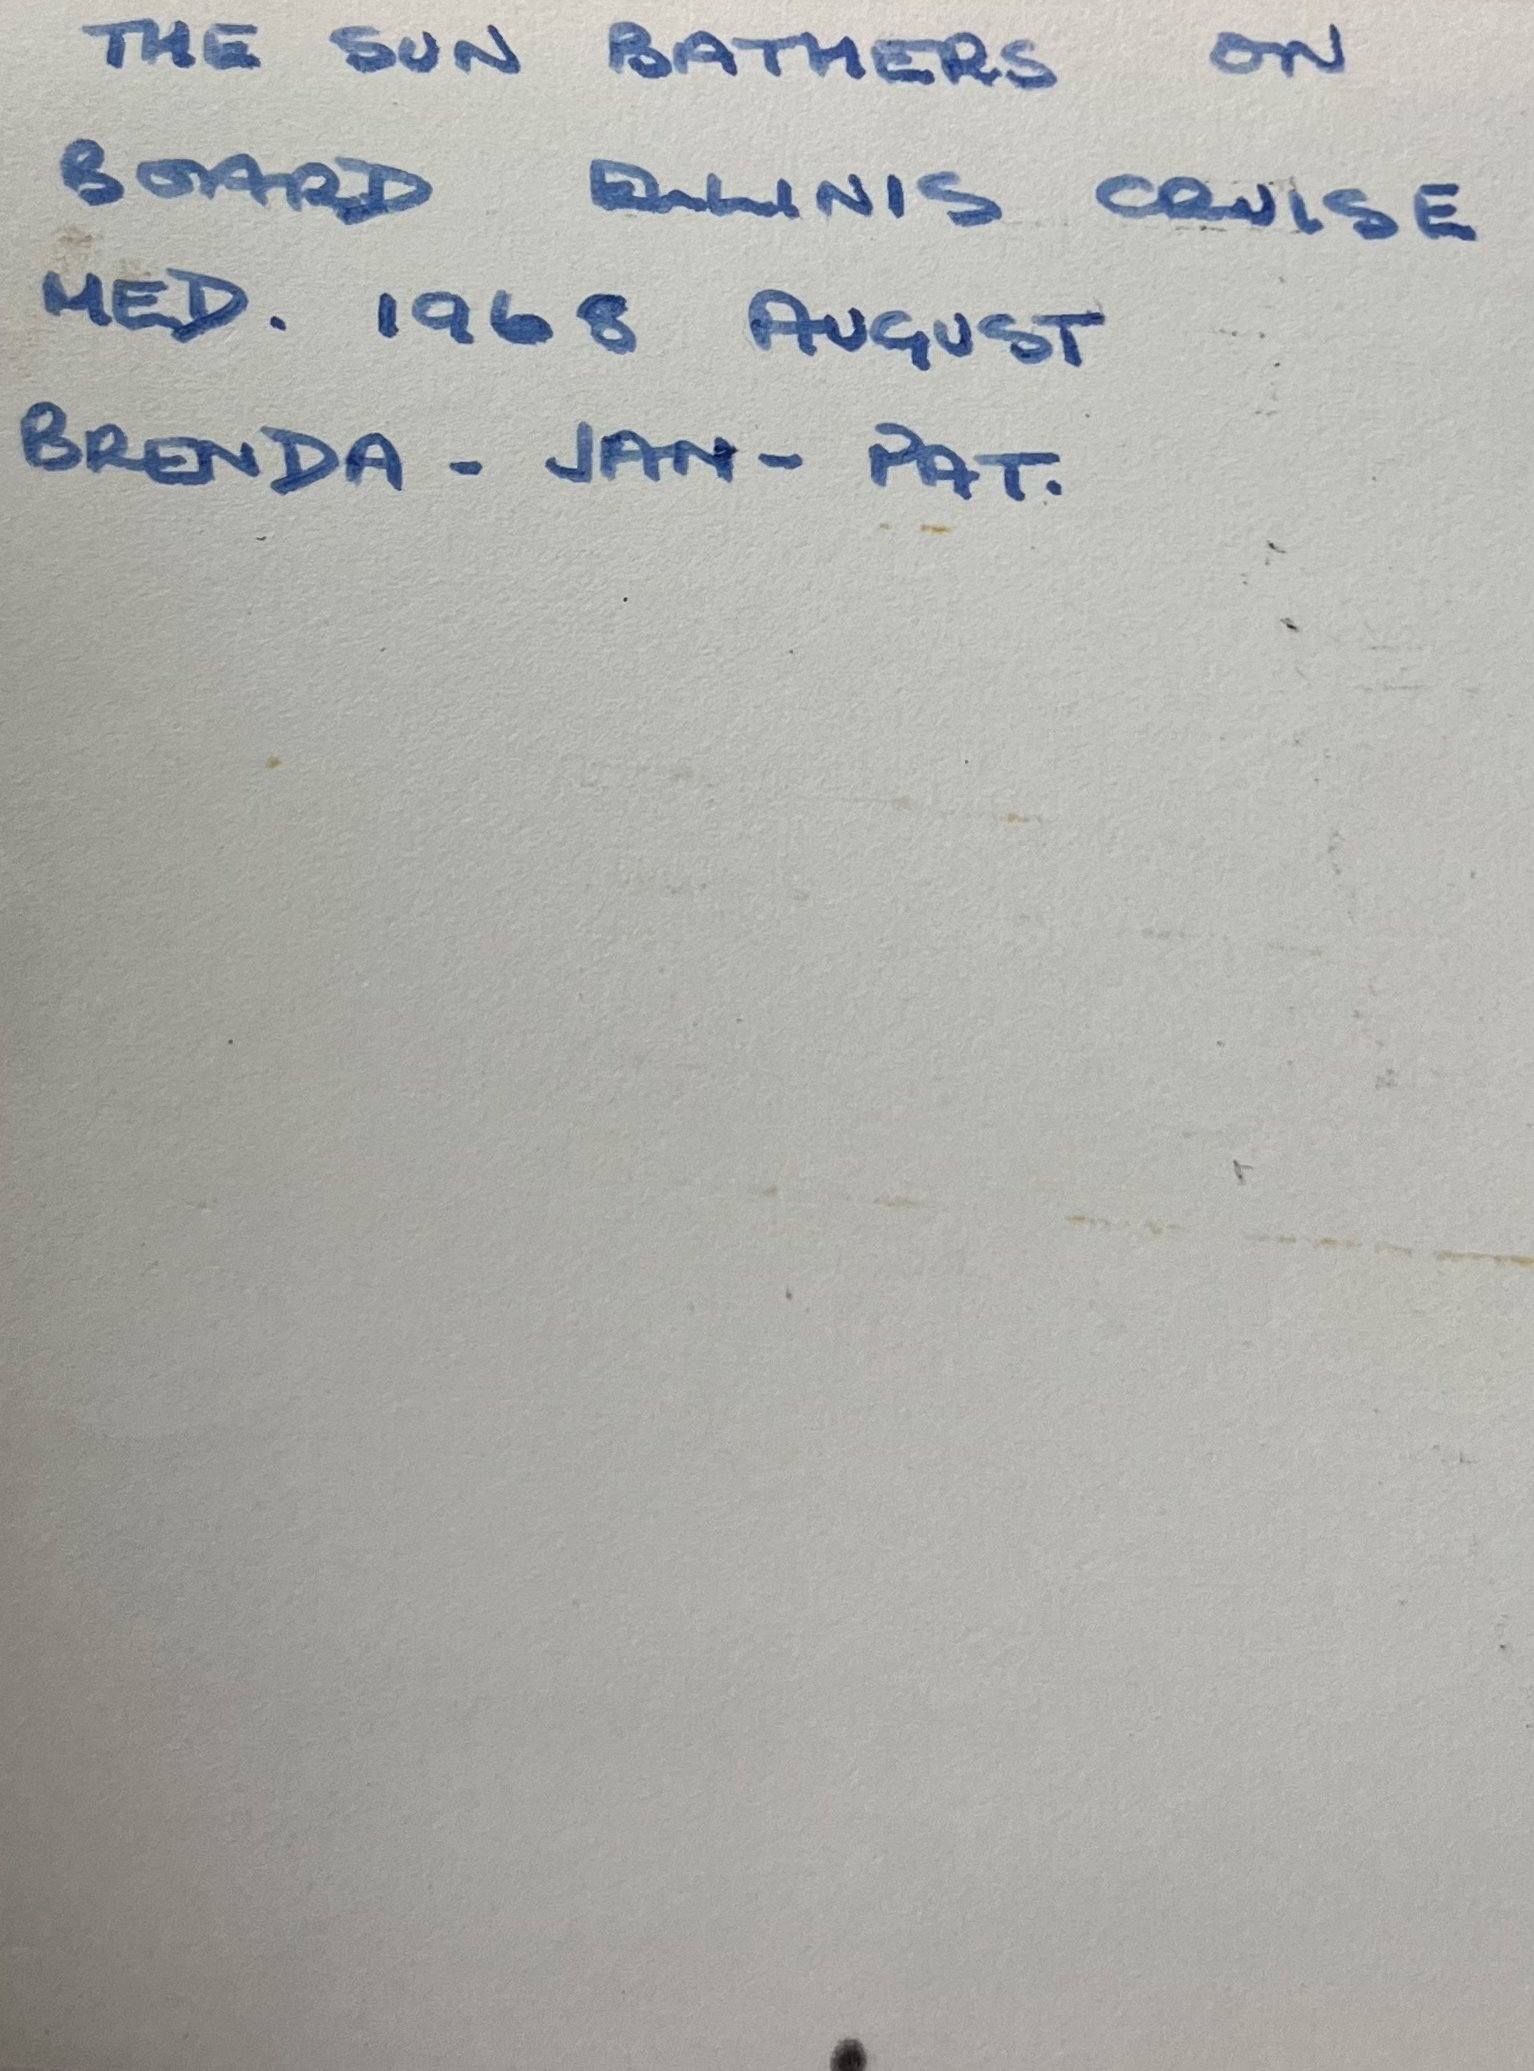 THE SUN BATHERS ON
BOARD ELLINIS CRUISE
MED. 1968 AUGUST
BRENDA - JAN - PAT.